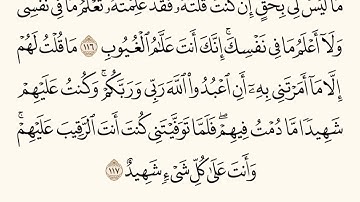 مَا لَيْسَ لِى بِحَقٍّ إِن كُنتُ قُلْتُهُۥ فَقَدْ عَلِمْتَهُۥ تَعْلَمُ مَا فِى نَفْسِى
وَلَآ أَعْلَمُ مَا فِى نَفْسِكَ إِنَّكَ أَنتَ عَلَّٰمُ ٱلْغُيُوبِ ١١٦ مَا قُلْتُ لَهُمْ
إِلَّا مَآ أَمَرْتَنِى بِهِۦٓ أَنِ ٱعْبُدُوا۟ ٱللَّهَ رَبِّى وَرَبَّكُمْ وَكُنتُ عَلَيْهِمْ
شَهِيدًا مَّا دُمْتُ فِيهِمْ فَلَمَّا تَوَفَّيْتَنِى كُنتَ أَنتَ ٱلرَّقِيبَ عَلَيْهِمْ
وَأَنتَ عَلَىٰ كُلِّ شَىْءٍ شَهِيدٌ ١١٧